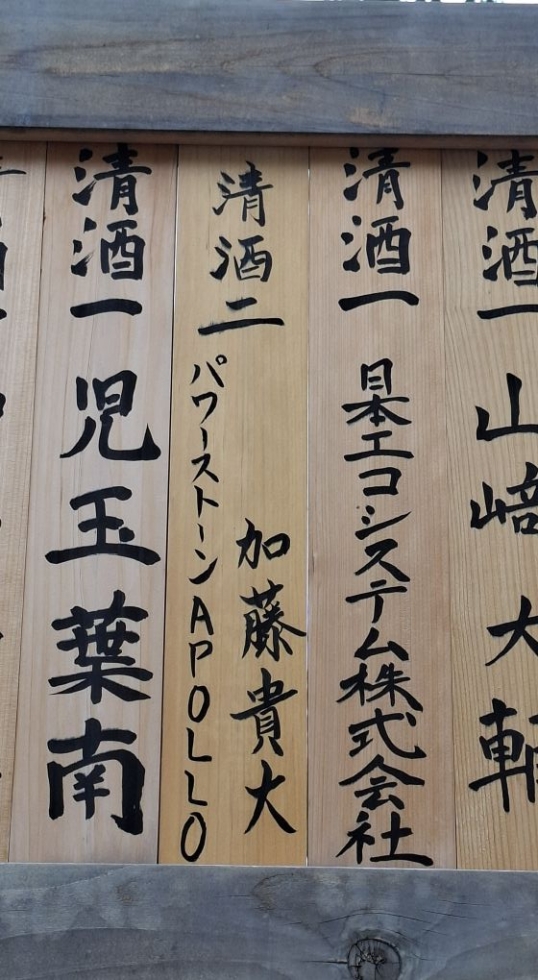 清酒一 山﨑大輔
清酒一 日本エコシステム株式会社
清酒二
加藤貴大
パワーストーンAPOLLO
清酒一 児玉葉南